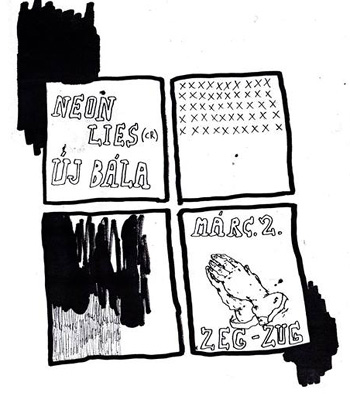 NEON
LIES (CR)
ÚJ BÁLA
MÁRC. 2.
ZEG-ZUG